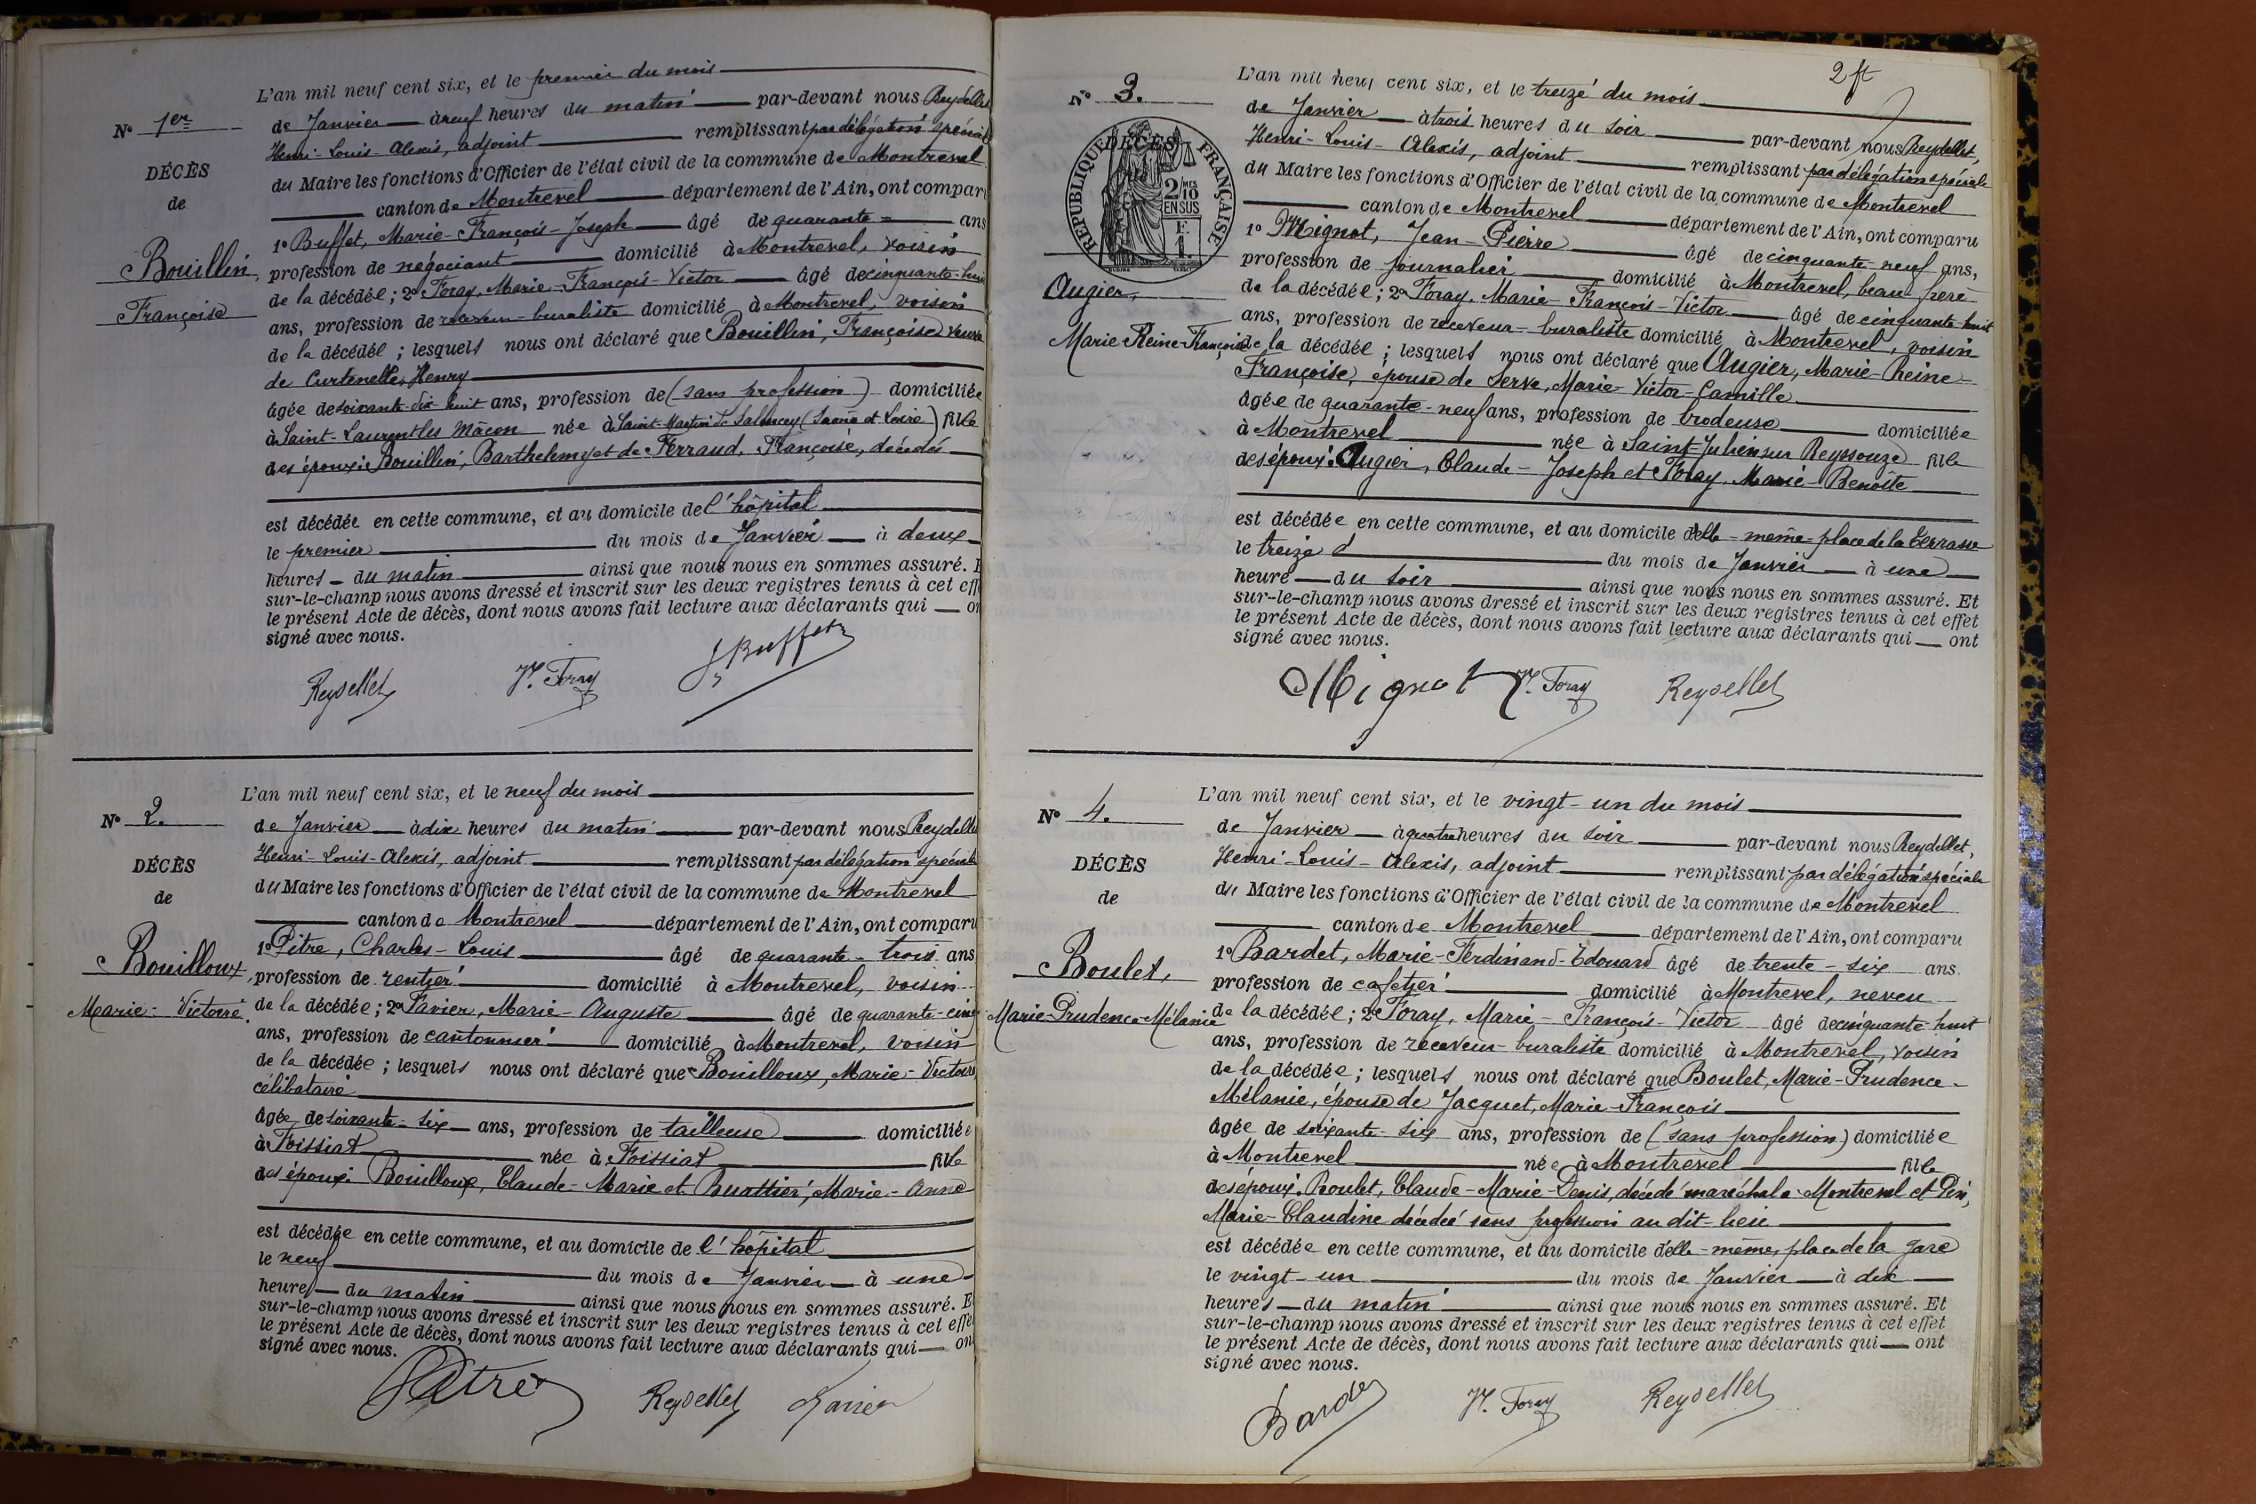 L'an mil neuf cent six, et le premier du mois
N° 1er
de Janvier à neuf heures du matin par-devant nous Reydellet
Henri-Louis-Alexis, adjoint remplissant par délégation spéciale
DÉCÈS
du Maire les fonctions d'Officier de l'état civil de la commune de Montrevel
de
canton de Montrevel département de l'Ain, ont comparu
1° Buffet, Marie-François-Joseph âgé de quarante ans
Bouillin,
profession de négociant domicilié à Montrevel, voisin
de la décédée; 2° Foray, Marie-François-Victor âgé de cinquante-huit
Françoise
ans, profession de receveur-buraliste domicilié à Montrevel, voisin
de la décédée; lesquels nous ont déclaré que Bouillin, Françoise veuve
de Curtenelle, Henry
âgée de soixante-dix-huit ans, profession de (sans profession) domiciliée
à Saint-Laurent-les Mâcon née à Saint-Martin de Salencey (Saône et Loire) fille
des époux: Bouillin, Barthelemy et de Ferraud, Françoise, décédés
est décédée en cette commune, et au domicile de l'hôpital
le premier du mois de Janvier à deux
heures du matin ainsi que nous nous en sommes assuré. E
sur-le-champ nous avons dressé et inscrit sur les deux registres tenus à cet eff
le présent Acte de décès, dont nous avons fait lecture aux déclarants qui on
signé avec nous.
Reydellet V. Foray J Buffet
L'an mil neuf cent six, et le neuf du mois
N° 2.
de Janvier à dix heures du matin par-devant nous Reydellet
Henri-Louis-Alexis, adjoint remplissant par délégation spéciale
DÉCÈS
du Maire les fonctions d'Officier de l'état civil de la commune de Montrevel
de
canton de Montrevel département de l'Ain, ont comparu
1° Pitre, Charles-Louis âgé de quarante-trois ans
Bouilloux,
profession de rentier domicilié à Montrevel, voisin
Marie-Victoire
de la décédée; 2° Favier, Marie-Auguste âgé de quarante-cinq
ans, profession de cantonnier domicilié à Montrevel, voisin
de la décédée; lesquels nous ont déclaré que Bouilloux, Marie-Victoire
célibataire
âgée de soixante-six ans, profession de tailleuse domiciliée
à Foissiat née à Foissiat fille
des époux: Bouilloux, Claude-Marie et Buattier, Marie-Anne
est décédée en cette commune, et au domicile de l'hôpital
le neuf du mois de Janvier à une
heure du matin ainsi que nous nous en sommes assuré. E
sur-le-champ nous avons dressé et inscrit sur les deux registres tenus à cet effe
le présent Acte de décès, dont nous avons fait lecture aux déclarants qui on
signé avec nous.
Pitre Reydellet Favier
2 ft
L'an mil neuf cent six, et le treize du mois
N° 3.
de Janvier à trois heures du soir par-devant nous Reydellet,
Henri-Louis-Alexis, adjoint remplissant par délégation spéciale
RÉPUBLIQUE FRANÇAISE
DÉCÈS
2/10 EN SUS
F. 1.
du Maire les fonctions d'Officier de l'état civil de la commune de Montrevel
canton de Montrevel département de l'Ain, ont comparu
1° Mignot, Jean-Pierre âgé de cinquante-neuf ans,
profession de journalier domicilié à Montrevel, beau-frère
Augier,
de la décédée; 2° Foray, Marie-François-Victor âgé de cinquante huit
ans, profession de receveur-buraliste domicilié à Montrevel, voisin
Marie Reine Françoise
de la décédée; lesquels nous ont déclaré que Augier, Marie-Reine-
Françoise, épouse de Serve, Marie-Victor-Camille
âgée de quarante-neuf ans, profession de brodeuse domiciliée
à Montrevel née à Saint-Julien sur Reyssouze fille
des époux: Augier, Claude-Joseph et Foray, Marie-Benoîte
est décédée en cette commune, et au domicile d'elle-même-place de la Terrasse
le treize du mois de Janvier à une
heure du soir ainsi que nous nous en sommes assuré. Et
sur-le-champ nous avons dressé et inscrit sur les deux registres tenus à cet effet
le présent Acte de décès, dont nous avons fait lecture aux déclarants qui ont
signé avec nous.
Mignot V. Foray Reydellet
L'an mil neuf cent six, et le vingt-un du mois
N° 4.
de Janvier à quatre heures du soir par-devant nous Reydellet,
Henri-Louis-Alexis, adjoint remplissant par délégation spéciale
DÉCÈS
du Maire les fonctions d'Officier de l'état civil de la commune de Montrevel
de
canton de Montrevel département de l'Ain, ont comparu
1° Bardet, Marie-Ferdinand-Edouard âgé de trente-six ans
Boulet,
profession de cafetier domicilié à Montrevel, neveu
Marie-Prudence-Mélanie
de la décédée; 2° Foray, Marie-François-Victor âgé de cinquante-huit
ans, profession de receveur-buraliste domicilié à Montrevel, voisin
de la décédée; lesquels nous ont déclaré que Boulet, Marie-Prudence-
Mélanie, épouse de Jacquet, Marie-François
âgée de soixante-six ans, profession de (sans profession) domiciliée
à Montrevel née à Montrevel fille
des époux: Boulet, Claude-Marie-Denis, décédé maréchal à Montrevel et Pin,
Marie-Claudine décédée sans profession au dit-lieu
est décédée en cette commune, et au domicile d'elle-même, place de la gare
le vingt-un du mois de Janvier à dix
heures du matin ainsi que nous nous en sommes assuré. Et
sur-le-champ nous avons dressé et inscrit sur les deux registres tenus à cet effet
le présent Acte de décès, dont nous avons fait lecture aux déclarants qui ont
signé avec nous.
Bardet V. Foray Reydellet